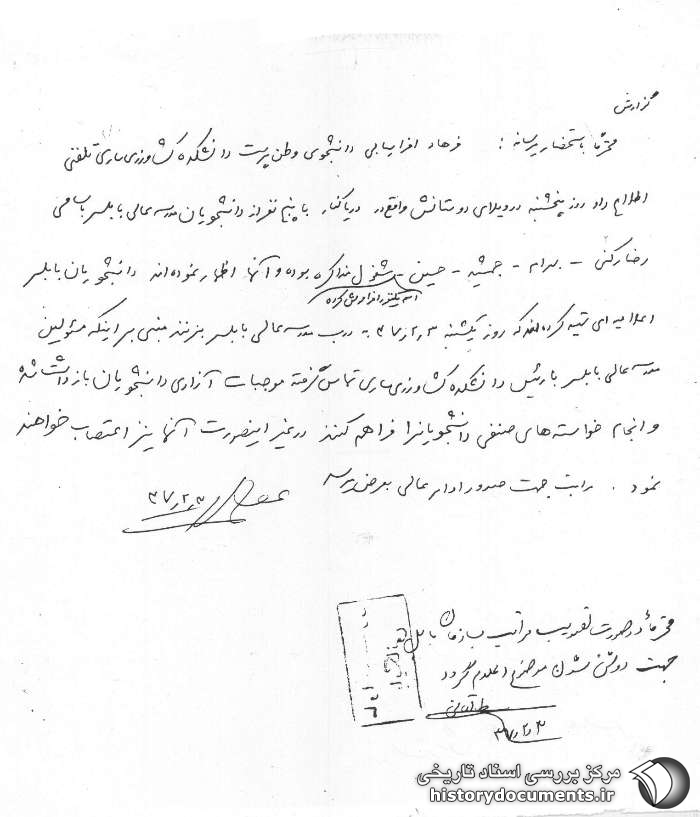 گزارش
محترماً باستحضار میرساند : فرهاد افراسیابی دانشجوی وطن پرست دانشکده کشاورزی ساری تلفنی
اطلاع داد روز پنجشنبه در ویلای دوستانش واقع در دریاکنار با پنج نفر از دانشجویان مدرسه عالی بابلسر باسامی
رضا رکنی - بهرام - جمشید - حسین - مشغول مذاکره بوده و آنها اظهار نموده‌اند دانشجویان بابلسر
اعلامیه ای تهیه کرده‌اند که روز یکشنبه ۳۷٫۲٫۳ به درب مدرسه عالی بابلسر بزنند مبنی بر اینکه مسئولین
مدرسه عالی بابلسر با رئیس دانشکده کشاورزی ساری تماس گرفته موجبات آزادی دانشجویان بازداشت شده
و انجام خواسته های صنفی دانشجویان را فراهم کنند در غیر اینصورت آنها نیز اعتصاب خواهند
نمود . مراتب جهت صدور اوامر عالی بعرض میرسد
۳۷٫۲٫۳
محترماً در صورت تصویب مراتب بسازمان بابل
جهت روشن شدن موضوع اعلام گردد
۳۷٫۲٫۳
مرکز بررسی اسناد تاریخی
historydocuments.ir